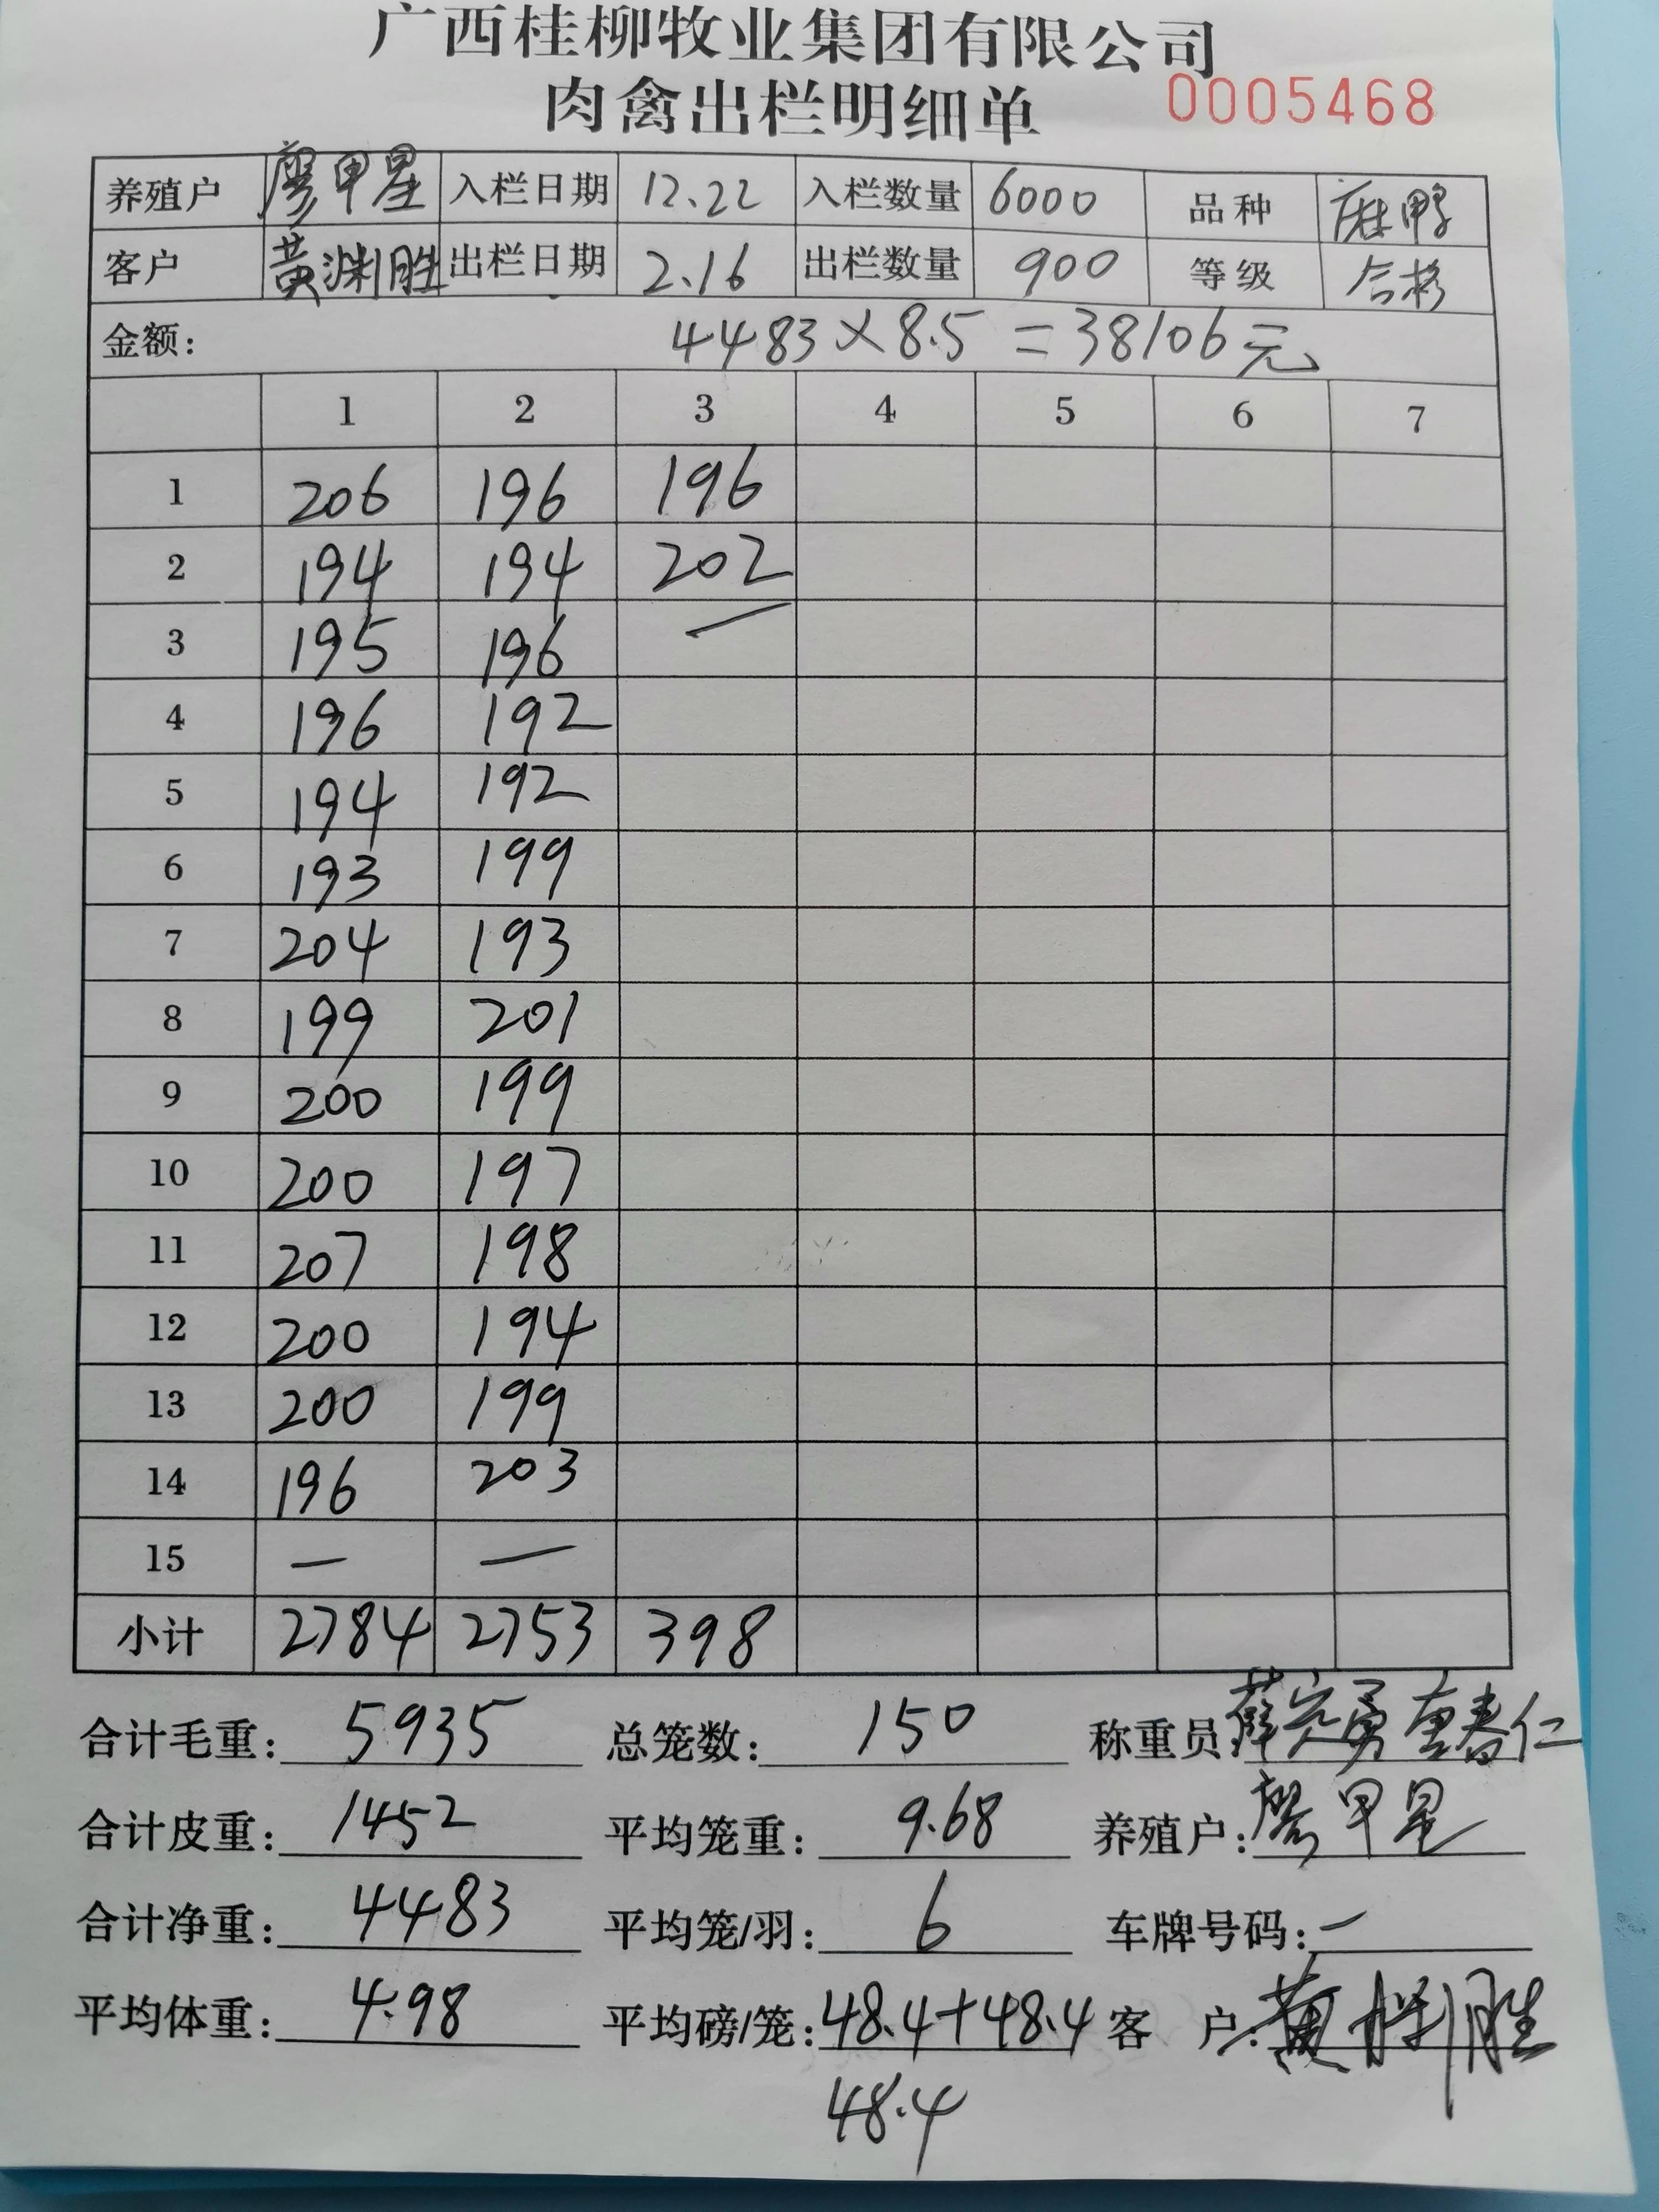 广西桂柳牧业集团有限公司
肉禽出栏明细单 0005468
养殖户 廖甲星 入栏日期 12.22 入栏数量 6000 品种 麻鸭
客户 黄渊胜 出栏日期 2.16 出栏数量 900 等级 合格
金额: 4483×8.5=38106元
1 2 3 4 5 6 7
1 206 196 196
2 194 194 202
3 195 196 —
4 196 192
5 194 192
6 193 199
7 204 193
8 199 201
9 200 199
10 200 197
11 207 198
12 200 194
13 200 199
14 196 203
15 — —
小计 2784 2753 398
合计毛重: 5935 总笼数: 150 称重员
合计皮重: 1452 平均笼重: 9.68 养殖户: 廖甲星
合计净重: 4483 平均笼/羽: 6 车牌号码: —
平均体重: 4.98 平均磅/笼: 48.4+48.4 客户: 黄渊胜
48.4